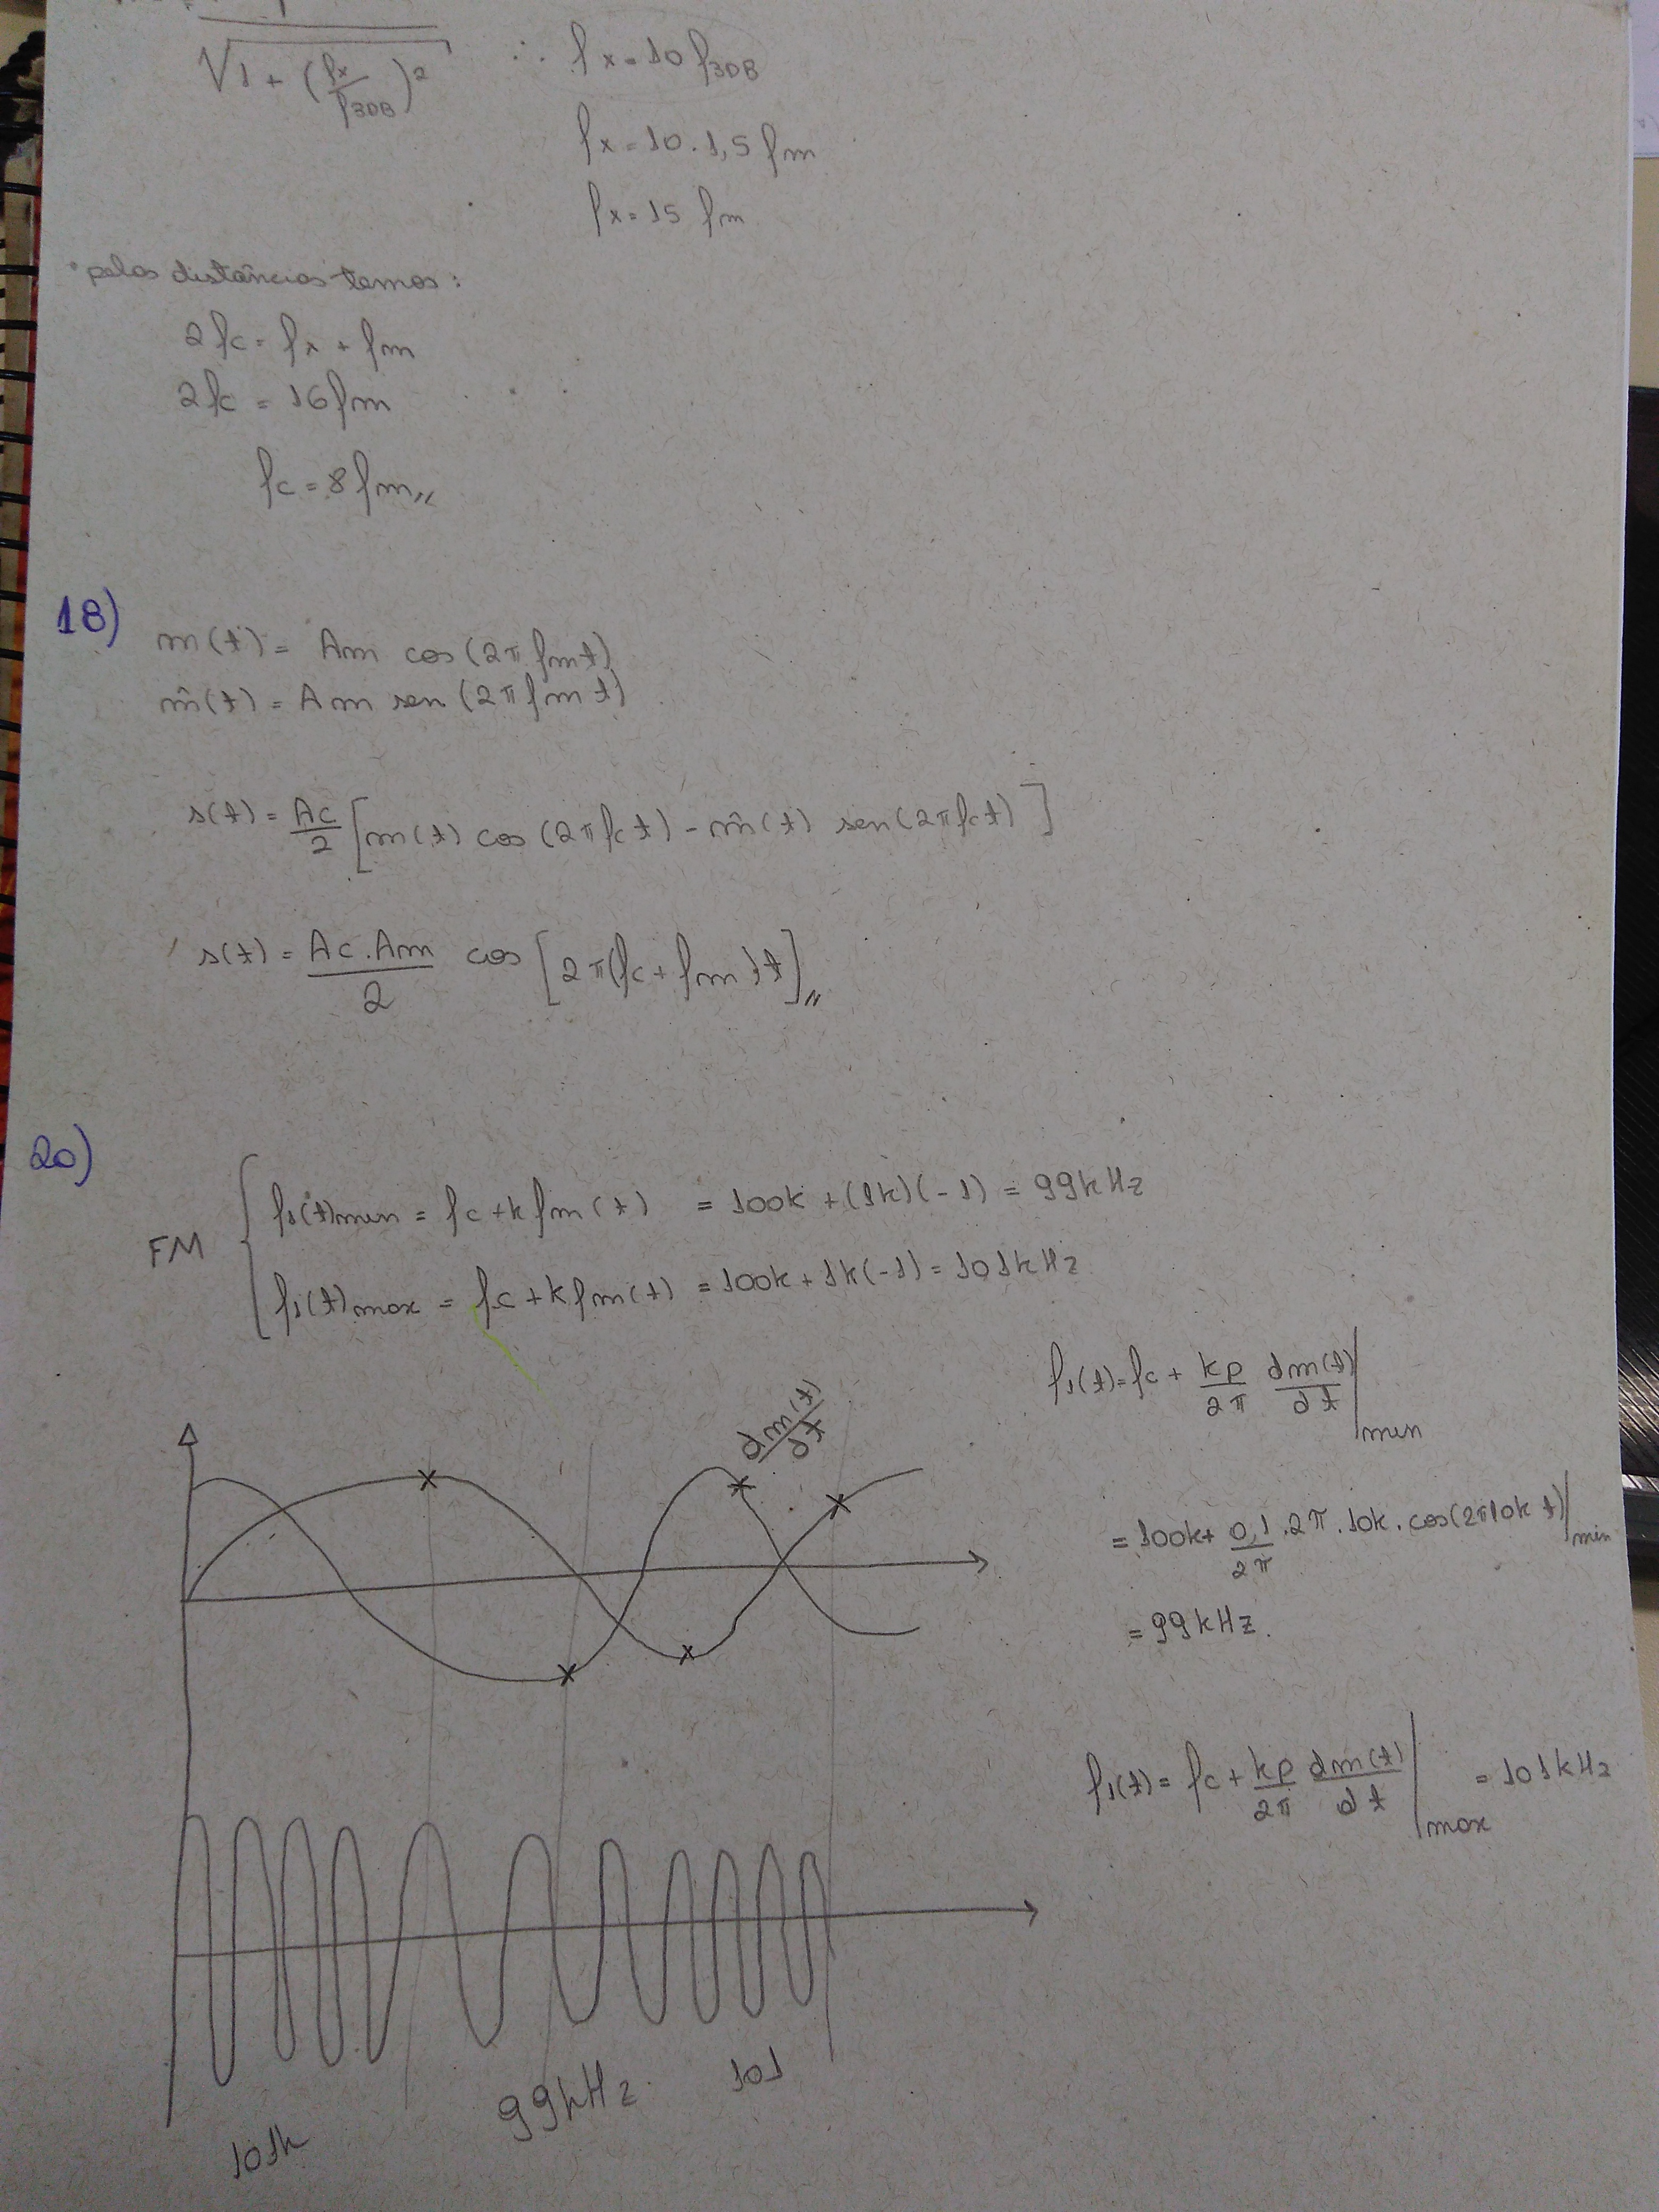 √1 + (fx/f3DB)² ∴ fx = 10 f3DB
fx = 10 . 1,5 fm
fx = 15 fm
* pelas distâncias temos :
2fc = fx + fm
2fc = 16fm
fc = 8fm,,
18) m(t) = Am cos (2π fmt)
m̂(t) = Am sen (2π fm t)
s(t) = Ac/2 [m(t) cos (2πfct) - m̂(t) sen(2πfct)]
s(t) = Ac.Am/2 cos [2π(fc + fm)t],,
20)
FM { f1(t)min = fc + k fm(t) = 100k + (1k)(-1) = 99kHz
f1(t)max = fc + k fm(t) = 100k + 1k(-1) = 101kHz
f1(t) = fc + kp/2π dm(t)/dt |min
dm(t)/dt
= 100k + 0,1/2π . 2π . 10k . cos(2π10k t)|min
= 99kHz.
f1(t) = fc + kp/2π dm(t)/dt |max = 101kHz
101k 99kHz 101